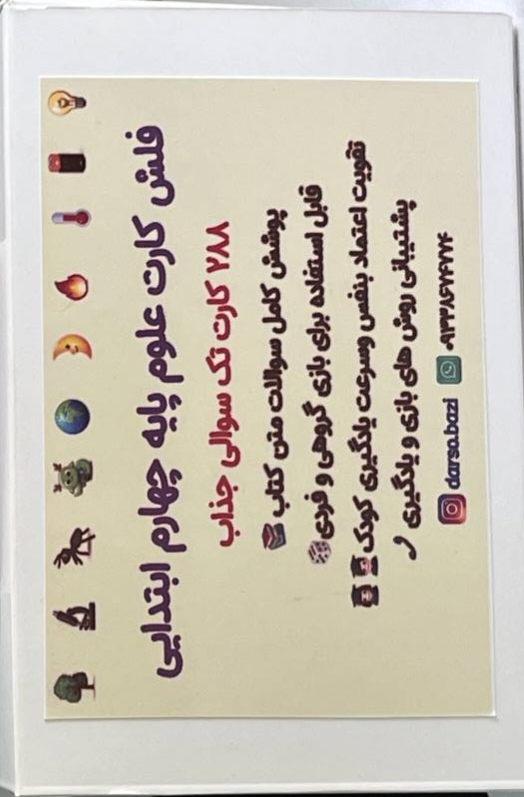 فلش کارت علوم پایه چهارم ابتدایی
۲۸۸ کارت تک سوالی جذاب
پوشش کامل سوالات متن کتاب
قابل استفاده برای بازی گروهی و فردی
تقویت اعتماد بنفس وسرعت یادگیری کودک
پشتیبانی روش های بازی و یادگیری
darso.bazi ۰۹۳۳۸۶۷۴۷۲۴